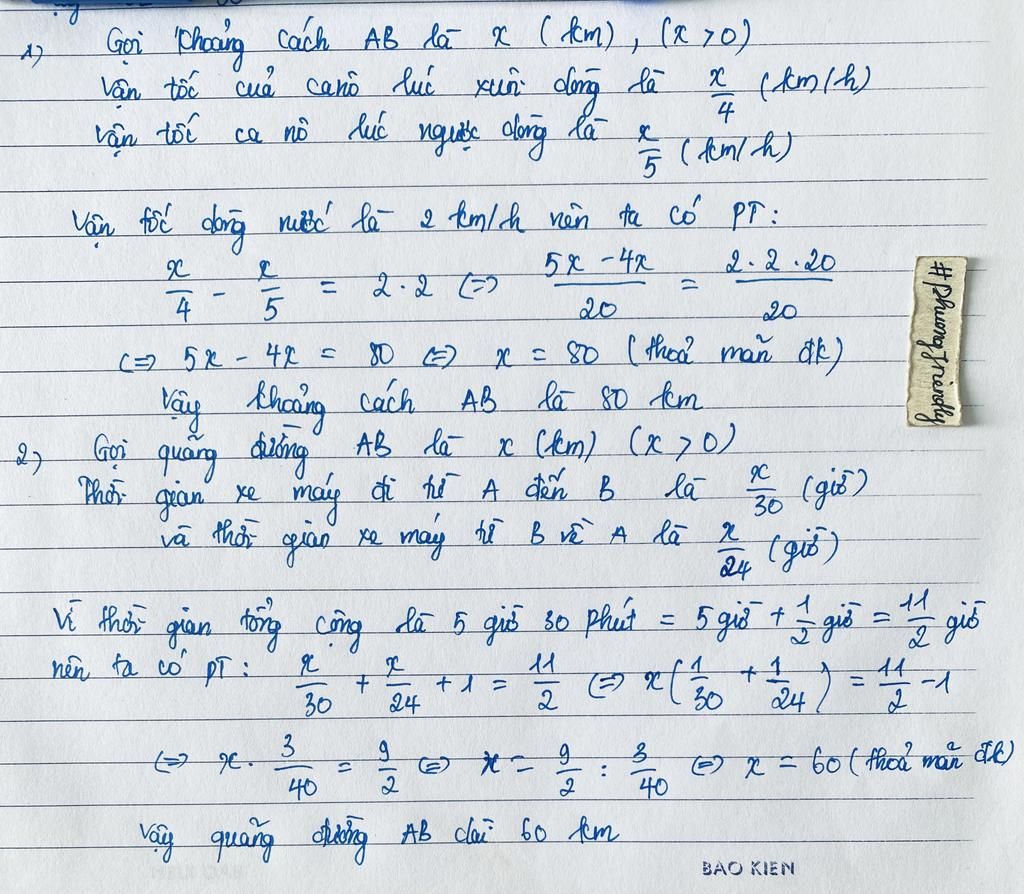 1) Gọi khoảng cách AB là x (km), (x > 0)
Vận tốc cuả canô lúc xuôi dòng là x/4 (km/h)
Vận tốc ca nô lúc ngược dòng là x/5 (km/h)
Vận tốc dòng nước là 2 km/h nên ta có PT:
x/4 - x/5 = 2.2 <=> (5x - 4x)/20 = (2.2.20)/20
<=> 5x - 4x = 80 <=> x = 80 (thoả mãn đk)
Vậy khoảng cách AB là 80 km
2) Gọi quãng đường AB là x (km) (x > 0)
Thời gian xe máy đi từ A đến B là x/30 (giờ)
và thời gian xe máy từ B về A là x/24 (giờ)
Vì thời gian tổng cộng là 5 giờ 30 phút = 5 giờ + 1/2 giờ = 11/2 giờ
nên ta có PT: x/30 + x/24 + 1 = 11/2 <=> x(1/30 + 1/24) = 11/2 - 1
<=> x . 3/40 = 9/2 <=> x = 9/2 : 3/40 <=> x = 60 (thoả mãn đk)
Vậy quãng đường AB dài 60 km
#phuongfriendly
BAO KIEN